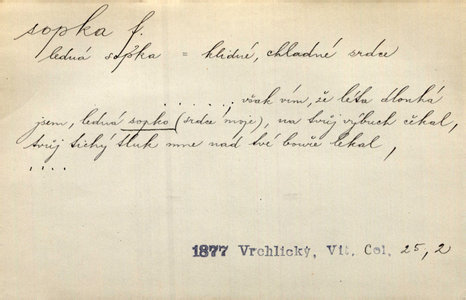 sopka f.
ledná sopka = klidné, chladné srdce
...... však vím, že léta dlouhá
jsem, ledná sopko (srdce moje), na tvůj výbuch čekal,
tvůj tichý tluk mne nad tvé bouře lekal,
....
1877 Vrchlický, Vit. Col, 25, 2